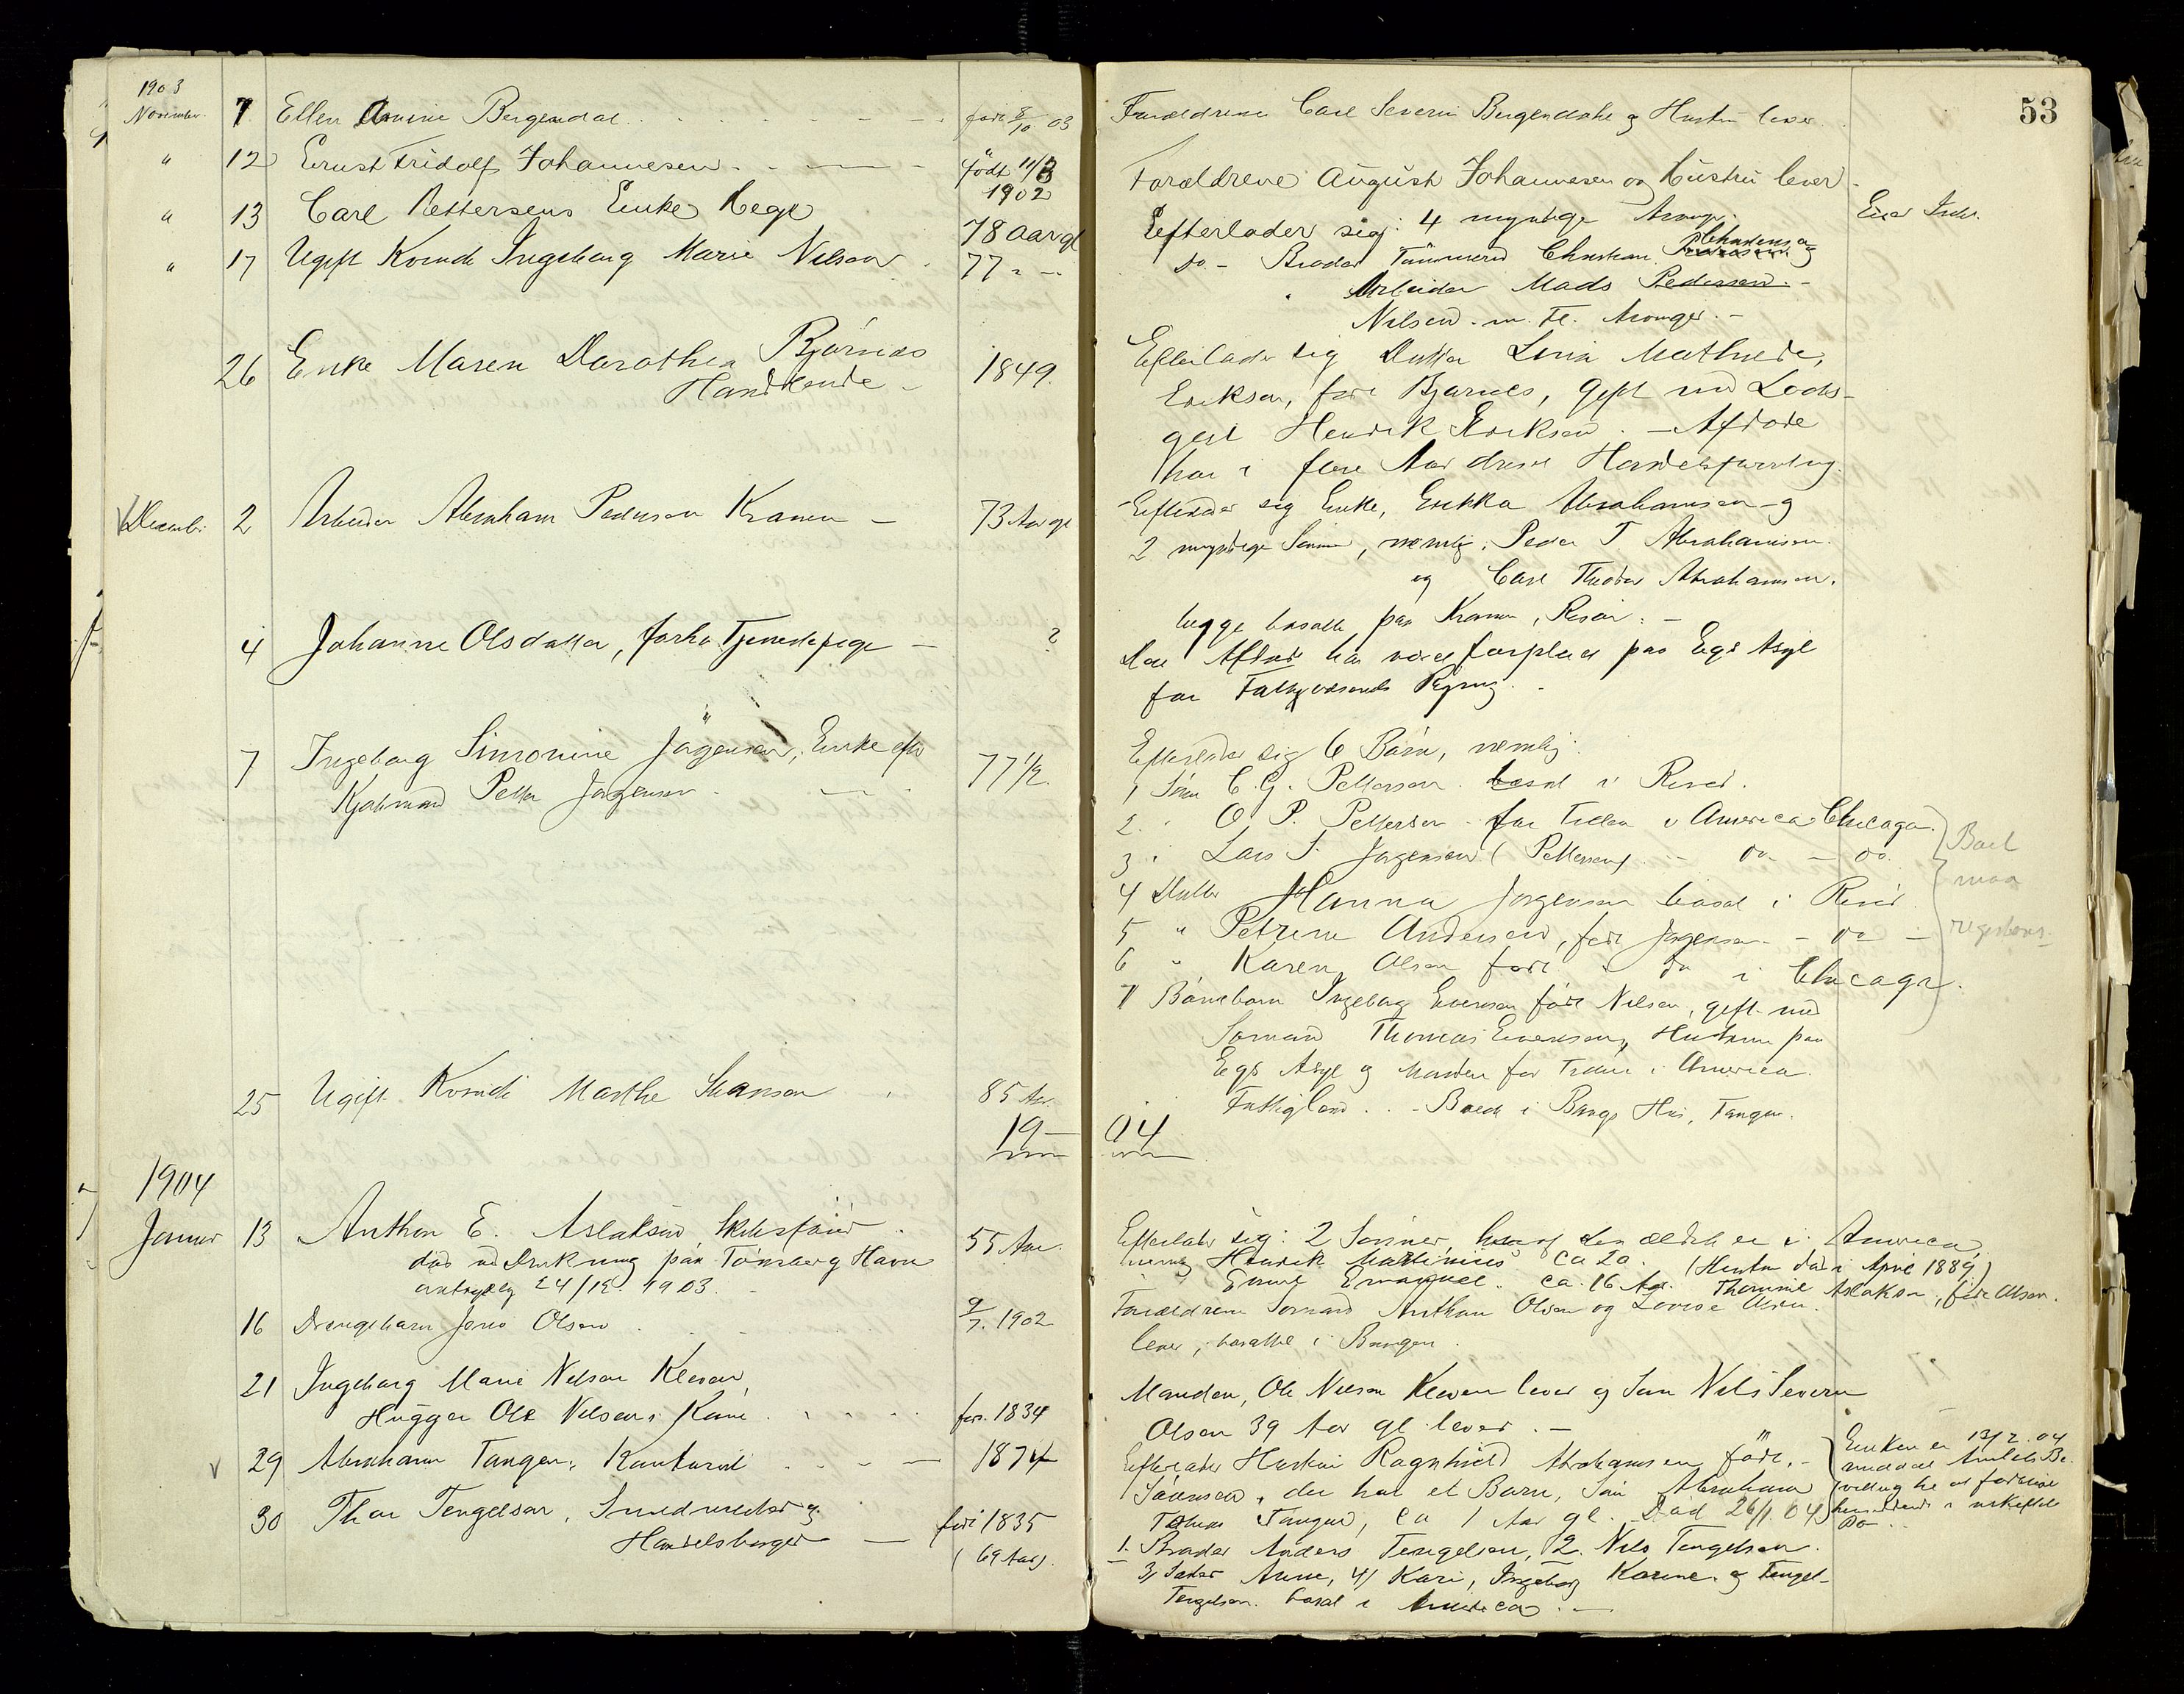 53
1903
November. 7 Ellen Amine Bergendal født 8/10 03
Forældrene Carl Severin Bergendahl og Hustru lever.
" 12 Ernst Fridolf Johannesen født 11/3 1902
Forældrene August Johannesen og Hustru lever.
" 13 Carl Pettersens Enke Hege 78 Aar gl
Efterlader sig: 4 myndige Arvinger.
" 17 Ugift Kvinde Ingeborg Marie Nilsen 77 " -
do - Broder Tømmermd Christian Chrstensen og
" Arbeider Mads Pedersen. -
Nilsen. m. Fl. Arvinger. -
26 Enke Maren Dorothea Bjørnes
Handlende - 1849.
Efterlader sig Datter Lovise Mathilde,
Eriksen, født Bjørnes, gift med Lods-
gut Henrik Eriksen. - Afdøde
har i flere Aar drevet Handelsforretning.
Decembr. 2 Arbeider Abraham Pedersen Kranen - 73 Aar gl
Efterlader sig Enke, Erikka Abrahamsen og
2 myndige Sønner, nemlig: Peder T Abrahamsen.
og Carl Theodor Abrahamsen,
begge bosatte paa Kranen, Risør. -
4 Johanne Olsdatter, forhv Tjenestepige - ?
Den Afdøde har været forpleiet paa Egs Asyl
for Fattigvæsenets Regning. -
7 Ingeborg Simonine Jørgensen, Enke efter
Kjøbmand Petter Jørgensen. 77 1/2.
Efterlader sig 6 Børn, nemlig:
1 Søn C. G. Pettersen. bosat i Risør.
2. " O P. Pettersen - for Tiden i America Chicago.
3 " Lars S. Jørgensen (Pettersen) - do - do.
4 Datter Hanna Jørgensen bosat i Risør
5 " Petrine Andersen, født Jørgensen - do -
6 " Karen Olsen født " do i Chicago.
Boet
maa
registrer.
7 Barnebarn Ingeborg Evensen født Nilsen, gift med
Sømand Thomas Evensen, Hustruen paa
Egs Asyl og Manden for Tiden i America.
25 Ugift Kvinde Marthe Svensen 85 Aar.
Fattiglem. - Boede i Bangs Hus, Tangen.
19-04
1904
Januar 13 Anthon E. Aslaksen, Skibsfører. 55 Aar.
død ved Drukning paa Tønsberg Havn
antagelig 24/12. 1903.
Efterlader sig: 2 Sønner, hvoraf den ældste er i America,
nemlig Henrik Martinius ca 20. (Hustru død i April 1889)
Emil Emanuel. ca. 16 Aar. Thomine Aslaksen, født Olsen.
16 Drengebarn Jens Olsen 9/7. 1902
Forældrene Sømand Anthon Olsen og Lovise Olsen.
lever, bosatte i Bangen.
21 Ingeborg Marie Nilsen Kleven,
Hugger Ole Nilsens Kone. før. 1834
Manden, Ole Nilsen Kleven lever og Søn Nils Severin
Olsen 39 Aar gl. lever. -
29 Abraham Tangen, Kontorist 1874
Efterlader Hustru Ragnhild Abrahamsen født. -
Sørensen, der har et Barn, Søn Abraham
Tangen, ca 1 Aar gl. Død 26/1. 04
Enken er 13/2. 04
meddelt Amtets Be-
villing til at forblive
hensiddende i uskiftet
Bo -
30 Thor Tengelsen, Smedmester og
Handelsborger - født 1835
(69 Aar).
1. Broder Anders Tengelsen, 2. Nils Tengelsen.
3) Søster Anne, 4) Kari, Ingeborg Karine. og Tengel-
Tengelsen. bosat i America. -